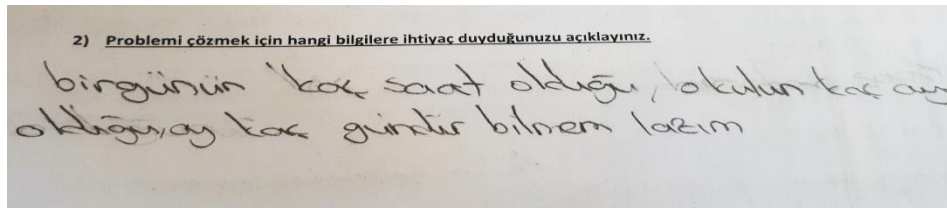 2) Problemi çözmek için hangi bilgilere ihtiyaç duyduğunuzu açıklayınız.
birgünün kaç saat olduğu, okulun kaç ay
olduğu, ay kaç gündür bilmem lazım